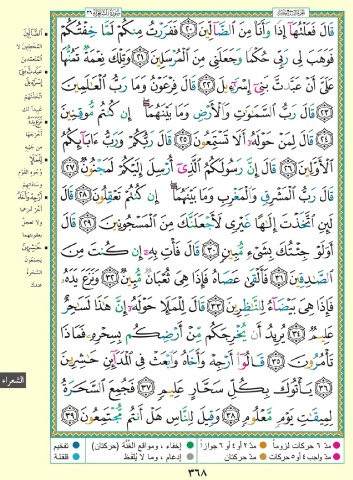 سُورَةُ الشُّعَرَاءِ ٢٦
قَالَ فَعَلْتُهَا إِذًا وَأَنَا۠ مِنَ الضَّالِّينَ ٢٠ فَفَرَرْتُ مِنكُمْ لَمَّا خِفْتُكُمْ
فَوَهَبَ لِى رَبِّى حُكْمًا وَجَعَلَنِى مِنَ الْمُرْسَلِينَ ٢١ وَتِلْكَ نِعْمَةٌ تَمُنُّهَا
عَلَىَّ أَنْ عَبَّدتَّ بَنِىٓ إِسْرَٰٓءِيلَ ٢٢ قَالَ فِرْعَوْنُ وَمَا رَبُّ الْعَٰلَمِينَ
٢٣ قَالَ رَبُّ السَّمَٰوَٰتِ وَالْأَرْضِ وَمَا بَيْنَهُمَآ إِن كُنتُم مُّوقِنِينَ
٢٤ قَالَ لِمَنْ حَوْلَهُۥٓ أَلَا تَسْتَمِعُونَ ٢٥ قَالَ رَبُّكُمْ وَرَبُّ ءَابَآئِكُمُ
الْأَوَّلِينَ ٢٦ قَالَ إِنَّ رَسُولَكُمُ الَّذِىٓ أُرْسِلَ إِلَيْكُمْ لَمَجْنُونٌ ٢٧
قَالَ رَبُّ الْمَشْرِقِ وَالْمَغْرِبِ وَمَا بَيْنَهُمَآ إِن كُنتُمْ تَعْقِلُونَ ٢٨ قَالَ
لَئِنِ اتَّخَذْتَ إِلَٰهًا غَيْرِى لَأَجْعَلَنَّكَ مِنَ الْمَسْجُونِينَ ٢٩ قَالَ
أَوَلَوْ جِئْتُكَ بِشَىْءٍ مُّبِينٍ ٣٠ قَالَ فَأْتِ بِهِۦٓ إِن كُنتَ مِنَ
الصَّٰدِقِينَ ٣١ فَأَلْقَىٰ عَصَاهُ فَإِذَا هِىَ ثُعْبَانٌ مُّبِينٌ ٣٢ وَنَزَعَ يَدَهُۥ
فَإِذَا هِىَ بَيْضَآءُ لِلنَّٰظِرِينَ ٣٣ قَالَ لِلْمَلَإِ حَوْلَهُۥٓ إِنَّ هَٰذَا لَسَٰحِرٌ
عَلِيمٌ ٣٤ يُرِيدُ أَن يُخْرِجَكُم مِّنْ أَرْضِكُم بِسِحْرِهِۦ فَمَاذَا
تَأْمُرُونَ ٣٥ قَالُوٓا۟ أَرْجِهْ وَأَخَاهُ وَابْعَثْ فِى الْمَدَآئِنِ حَٰشِرِينَ
٣٦ يَأْتُوكَ بِكُلِّ سَحَّارٍ عَلِيمٍ ٣٧ فَجُمِعَ السَّحَرَةُ
لِمِيقَٰتِ يَوْمٍ مَّعْلُومٍ ٣٨ وَقِيلَ لِلنَّاسِ هَلْ أَنتُم مُّجْتَمِعُونَ ٣٩
الضَّالِّينَ
المخطئين لا
المتعمدين
عبدت بني
إسرائيل
اتخذتهم
عبيدا لك
نزع يده
أخرجها
من جيبه
للملإ
وجوه القوم
وساداتهم
أرجه وأخاه
أخر أمرهما
ولا تعجل
بعقوبتهما
حاشرين
يجمعون
السّحرة
عندك
الشعراء
مدّ ٦ حركات لزوماً مدّ ٢ أو ٤ أو ٦ جوازاً إخفاء، ومواقع الغنّة (حركتان) تفخيم
مدّ واجب ٤ أو ٥ حركات مدّ حركتان إدغام، وما لا يُلفظ قلقلة
٣٦٨